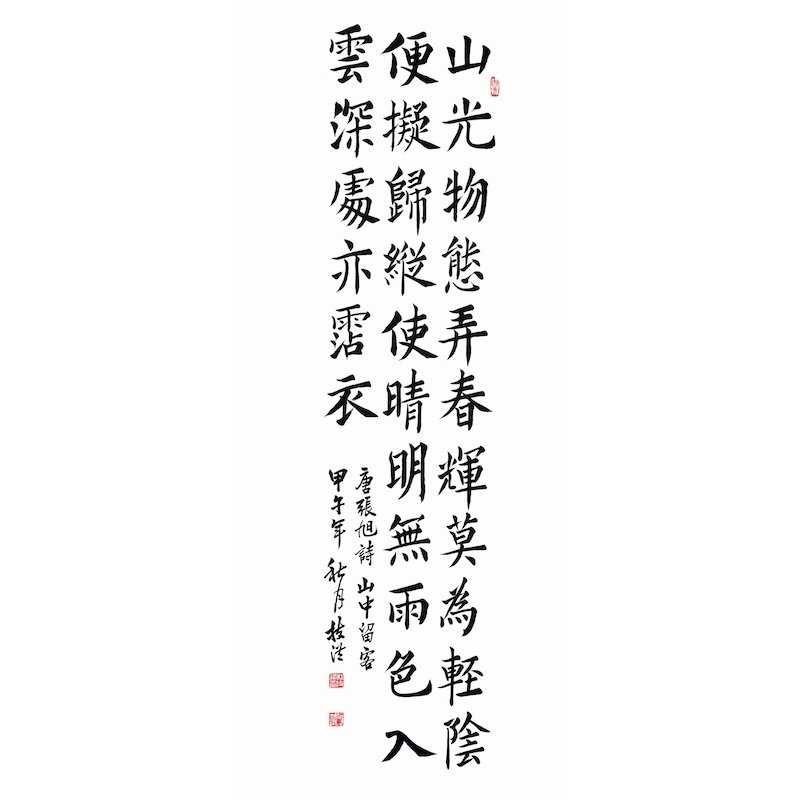 山光物態弄春輝莫為軽陰
便擬歸縱使晴明無雨色入
雲深處亦霑衣
唐張旭詩山中留客
甲午年秋月